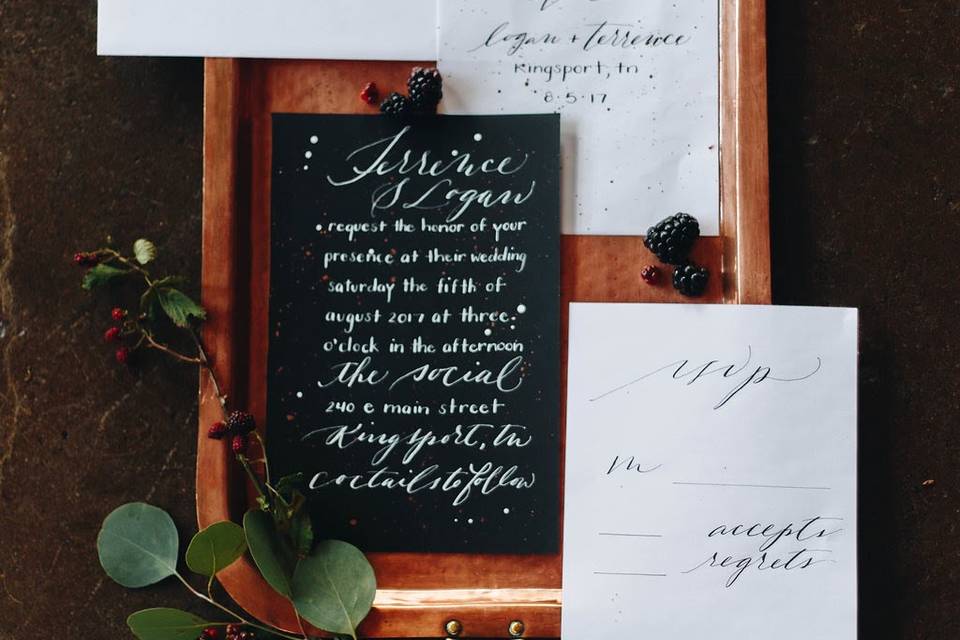 logan + terrence
Kingsport, tn
8·5·17
Terrence
& Logan
request the honor of your
presence at their wedding
saturday the fifth of
august 2017 at three
o'clock in the afternoon
the social
240 e main street
Kingsport, tn
coctails to follow
rsvp
m
accepts
regrets